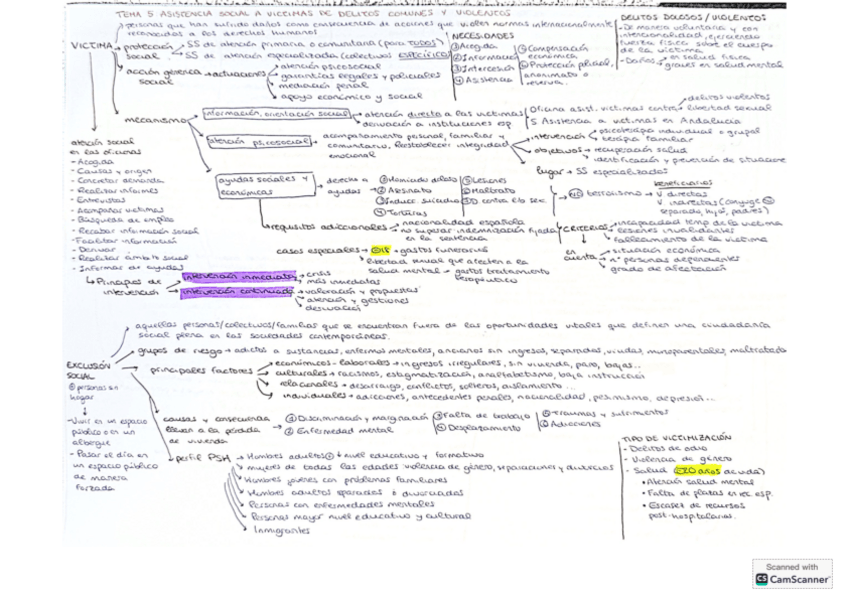 TEMA 5 ASISTENCIA SOCIAL A VICTIMAS DE DELITOS COMUNES Y VIOLENTOS
VICTIMA
personas que han sufrido daños como consecuencia de acciones que violen normas internacionalmente
reconocidas a los derechos humanos
protección social
SS de atención primaria o comunitaria (para todos)
SS de atención especializada (colectivos específico)
acción gerencia social → actuaciones
atención psicosocial
garantías legales y policiales
mediación penal
apoyo económico y social
NECESIDADES
① Acogida
② Información
③ Intercesión
④ Asistencia
⑤ Compensación económica
⑥ Protección policial, anonimato o reserva.
DELITOS DOLOSOS / VIOLENTOS
- De manera voluntaria y con
intencionalidad, ejerciendo
fuerza física sobre el cuerpo
de la víctima
- Daños
en salud física
graves en salud mental
mecanismo
información, orientación social
atención directa a las víctimas
derivación a instituciones esp
Oficina asist. victimas contra
delitos violentos
libertad sexual
S Asistencia a victimas en Andalucía
atención psicosocial
acompañamiento personal, familiar y
comunitario, Reestablecer integridad
emocional
intervención
psicoterapia individual o grupal
terapia familiar
objetivos → recuperación salud
identificación y prevención de situaciones
lugar → SS especializados
ayudas sociales y económicas
derecho a ayudas
① Homicidio doloso
② Asesinato
③ Induc. suicidio
④ Torturas
⑤ Lesiones
⑥ Maltrato
beneficiarios
NO terrorismo
V. directas
V. indirectas (conyuge NO
separado, hijos, padres)
requisitos adicionales
nacionalidad española
no superar indemnización fijada
en la sentencia
CRITERIOS
incapacidad temp de la victima
lesiones invalidantes
fallecimiento de la víctima
en cuenta
situación económica
nº personas dependientes
grado de afectación
casos especiales
gastos funerarios
libertad sexual que afecten a la
salud mental → gastos tratamiento
terapéutico
atención social
en las oficinas
- Acogida
- Causas y origen
- Concretar demanda
- Realizar informes
- Entrevistas
- Acompañar victimas
- Búsqueda de empleo
- Recabar información social
- Facilitar información
- Derivar
- Realizar ámbito social
- Informar de ayudas
Principios de intervención
intervención inmediata
crisis
más inmediatas
intervención continuada
valoración y propuestas
atención y gestiones
derivación
EXCLUSIÓN SOCIAL
aquellas personas/colectivos/familias que se encuentran fuera de las oportunidades vitales que definen una ciudadanía
social plena en las sociedades contemporáneas.
grupos de riesgo → adictos a sustancias, enfermos mentales, ancianos sin ingresos, separadas, viudas, monoparentales, maltratada
principales factores
económicos - laborales → ingresos irregulares, sin vivienda, paro, bajas...
culturales → racismos, estigmatización, analfabetismo, baja instrucción
relacionales → desarraigo, conflictos, solteros, aislamiento...
individuales → adicciones, antecedentes penales, nacionalidad, pesimismo, depresión...
personas sin
hogar
- Vivir en un espacio
público o en un
albergue
- Pasar el día en
un espacio público
de manera
forzada
causas y consecuencia
llevan a la pérdida
de vivienda
① Discriminación y marginación
② Enfermedad mental
③ Falta de trabajo
④ Desplazamiento
⑤ Traumas y sufrimientos
⑥ Adicciones
perfil PSH
Hombres adultos ↓ nivel educativo y formativo
mujeres de todas las edades violencia de género, separaciones y divorcios
Hombres jóvenes con problemas familiares
Hombres adultos separados o divorciados
Personas con enfermedades mentales
Personas mayor nivel educativo y cultural
Inmigrantes
TIPO DE VICTIMIZACIÓN
- Delitos de odio
- Violencia de género
- Salud (20 años de vida)
• Atención salud mental
• Falta de plazas en rec. esp.
• Escasez de recursos
post-hospitalarios.
Scanned with
CS CamScanner